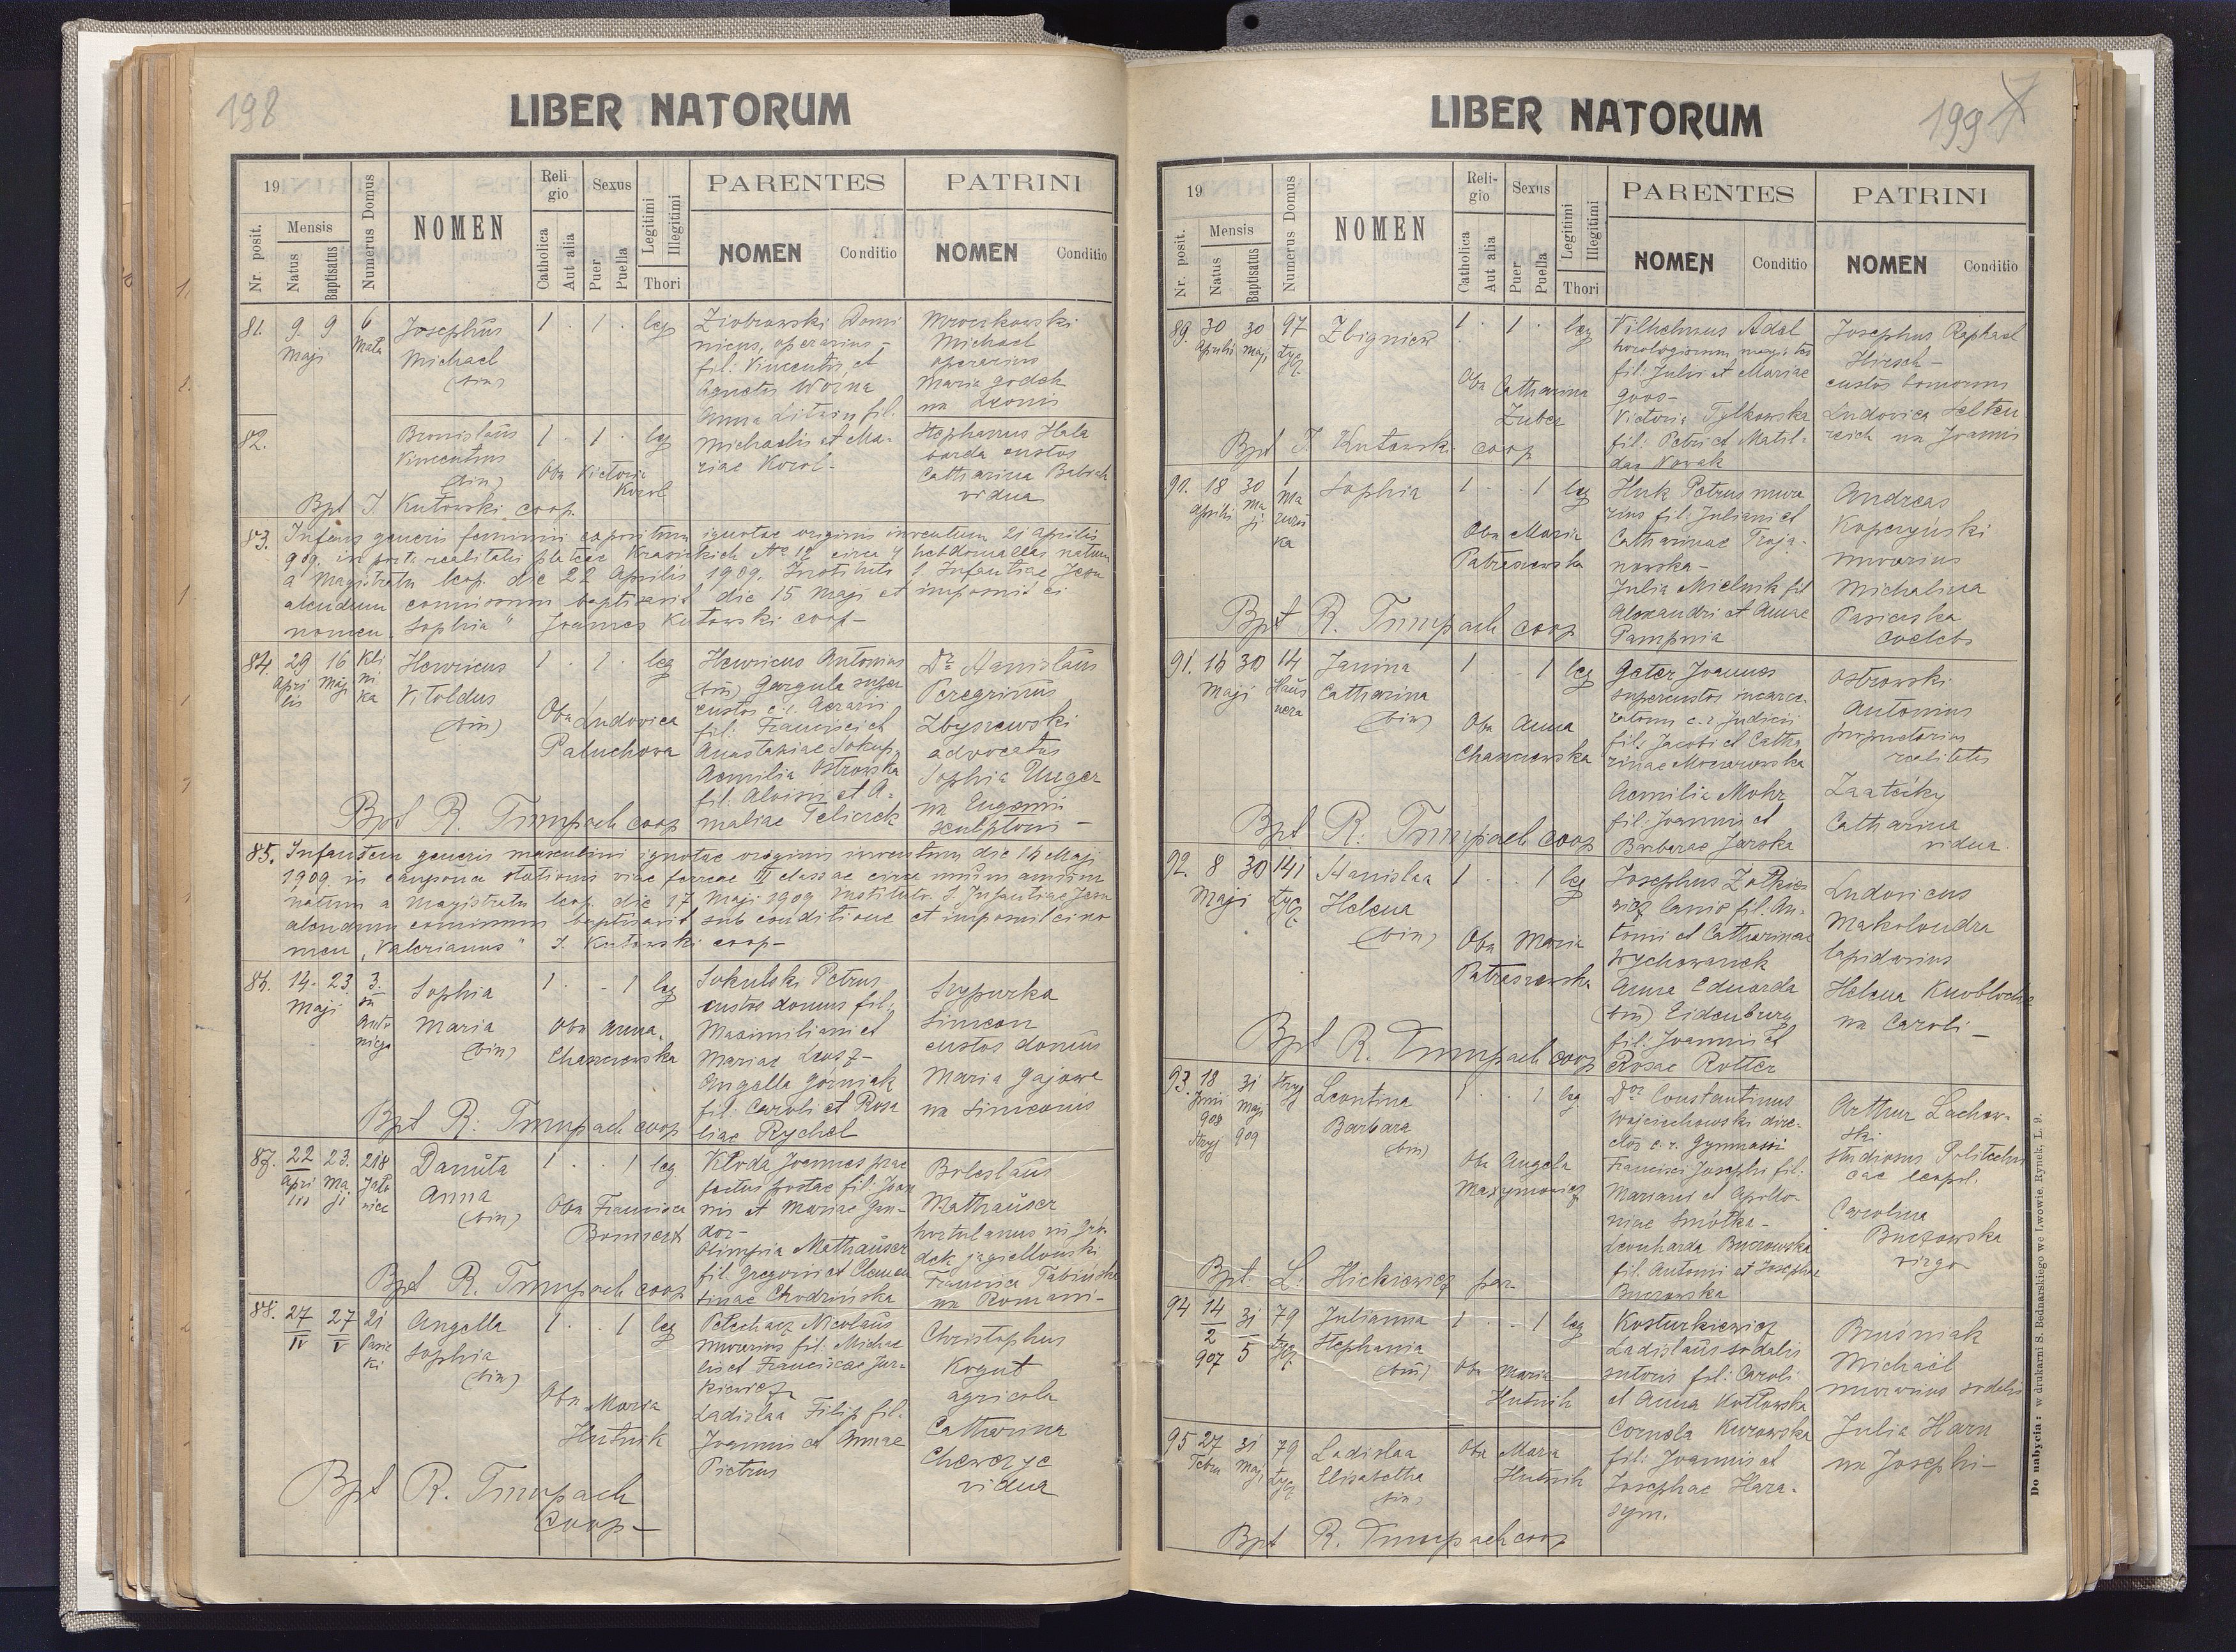 198
LIBER NATORUM
19
Mensis
Nr. posit.
Natus
Baptisatus
Numerus Domus
NOMEN
Religio
Catholica
Aut alia
Sexus
Puer
Puella
Legitimi
Illegitimi
Thori
PARENTES
NOMEN
Conditio
PATRINI
NOMEN
Conditio
81. 9 9 6
Maji Mała
Josephus
Michael
(bin)
1 . 1 . leg
Ziobrowski Domi
nicus, operarius -
fil: Vincentii et
Agnetis Worna
Anna Litwin fil.
Michaelis et Ma-
riae Korol -
Mroczkowski
Michael
operarius
Maria Godek
ux Leonis
82.
Bronislaus
Vincentius
(bin)
1 . 1 . leg
Obs Victoria
Korol
Stephanus Hala
barda custos
Catharina Babiak
vidua
Bpt J Kutowski coop.
83. Infans generis feminini expositum ignotae originis inventum 21 Aprilis
909. in porta realitatis plateae Krasickich No 12 circa 4 hebdomadas natum
a Magistratu leop. die 22 Aprilis 1909. Instituto S Infantiae Jesu
alendum commissum baptisavit die 15 Maji et imposuit ei
nomen „Sophia" Joannes Kutowski coop -
84. 29 16 Kli
Apri Maji ni
lis ka
Henricus
Vitoldus
(bin)
1 . 1 . leg
Obs Ludovica
Paluchowa
Henricus Antonius
(bin) Gargula super
custos c. r. Aerarii
fil: Francisci et
Anastasiae Sokup,
Aemilia Ostrowska
fil. Aloisii et A-
maliae Teliczek
Dr Stanislaus
Peregrinus
Zbyszewski
advocatus
Sophia Unger
ux Eugenii
sculptoris -
Bpt R. Trumpach coop
85. Infantem generis masculini ignotae originis inventum die 16 Maji
1909. in caupona stationis viae ferreae III classae circa unum annum
natum a Magistratu leop. die 17 Maji 1909 Instituto S. Infantiae Jesu
alendum commissum baptisavit sub conditione et imposuit ei no
men „Valerianus" J. Kutowski coop -
86. 14. 23 3.
Maji
Sophia
Maria
(bin)
1 . . 1 leg
Obs Anna
Chanowska
Sokulski Petrus
custos domus fil:
Maximiliani et
Mariae Leosz -
Angella Górniak
fil: Caroli et Rosa
liae Rychel
Szypurka
Simeon
custos domus
Maria Gajowe
ux Simeonis
Bpt R. Trumpach coop
87. 22 23. 218
Danuta
Anna
(bin)
1 . . 1 leg
Obs Francisca
Kłoda Joannes prae
fectus postae fil: Joan
nis et Mariae Gan-
dor -
Olimpia Mathauser
fil. Gregorii et Clemen
tinae Chodzińska
Boleslaus
Mathauser
hortulanus in Gró-
dek jagielloński
ux Romani -
Bpt R. Trumpach coop
88. 27 27 21
IV V Pasie
ki
Angella
Sophia
(bin)
1 . . 1 leg
Obs Maria
Hutnik
Pełechacz Nicolaus
murarius fil: Michae
lis et Franciscae Jur-
kiewicz
Ladislaa Filip fil.
Joannis et Annae
Pietrus
Christophus
Kogut
agricola
Catharina
vidua
Bpt R. Trumpach
coop -
199
LIBER NATORUM
19
Mensis
Nr. posit.
Natus
Baptisatus
Numerus Domus
NOMEN
Religio
Catholica
Aut alia
Sexus
Puer
Puella
Legitimi
Illegitimi
Thori
PARENTES
NOMEN
Conditio
PATRINI
NOMEN
Conditio
89. 30 30 97
Aprilis Maji
Zbigniew
1 . 1 . leg
Obs Catharina
Zuber
Vilhelmus Adel
horologiorum magister
fil: Julii et Mariae
Goos -
Victoria Tylkowska
fil: Petri et Matil-
dae Nowak
Josephus Raphael
Hirsch -
custos bonorum
Ludovica Selten
reich ux Joannis
Bpt J. Kutowski coop
90. 18 30 1
Aprilis Ma Ma
ji zuró
wka
Sophia
1 . . 1 leg
Obs Maria
Patraszewska
Huk Petrus mura
rius fil: Juliani et
Catharinae Troja-
nowska -
Julia Mielnik fil
Alexandri et Annae
Pampnia
Andreas
Kopczyński
murarius
Michalina
Pasieczka
coelebs
Bpt R. Trumpach coop
91. 16 30 14
Maji Haus
nera
Janina
Catharina
(bin)
1 . . 1 leg
Obs Anna
Chanowska
Gater Joannes
supercustos incarce
ratorum c. r. Judicii
fil: Jacobi et Catha
rinae Morawowska
Aemilia Mohr
fil: Joannis et
Barbarae Jarska
Ostrowski
Antonius
proprietarius
realitatis
Catharina
vidua.
Bpt R. Trumpach coop
92. 8 30 141
Maji Łycz.
Stanislaa
Helena
(bin)
1 . . 1 leg
Obs Maria
Patraszewska
Josephus Żołkie
wicz lanio fil: An-
tonii et Catharinae
Wychowanek
Anna Eduarda
(bin) Eidenburg
fil: Joannis et
Rosae Rotter
Ludovicus
Makolondra
lapidarius
Helena Knobloch
ux Caroli -
Bpt R. Trumpach coop
93. 18 31 Stryj
Junii Maji
908 909
Stryj
Leontina
Barbara
(bin)
1 . . 1 leg
Obs Angela
Maxymowicz
Dor Constantinus
Wojciechowski dire-
ctor c. r. Gymnasii
Francisci Josephi fil.
Mariani et Apollo-
niae Smółka -
Leonharda Buczowska
fil. Antonii et Josephae
Buczowska
Arthur Lachow-
ski
studiosus Politechni
cae leopol.
Carolina
Buczowska
virgo
Bpt. L. Hickiewicz par.
94 14 31 79
2 5
907
Julianna
Stephania
(bin)
1 . . 1 leg
Obs Maria
Hutnik
Kosturkiewicz
Ladislaus sodalis
sutoris fil: Caroli
et Anna Kotłowska
Cornela Kurowska
fil: Joannis et
Josephae Hara-
sym.
Bruśniak
Michaël
murarius sodalis
Julia Harn
ux Josephi -
95 27 31 79
Febru Maji Łycz
Ladislaa
Elisabetha
(bin)
Obs Maria
Hutnik
Bpt R. Trumpach coop
Do nabycia: w drukarni S. Bednarskiego we Lwowie, Rynek, L. 9.